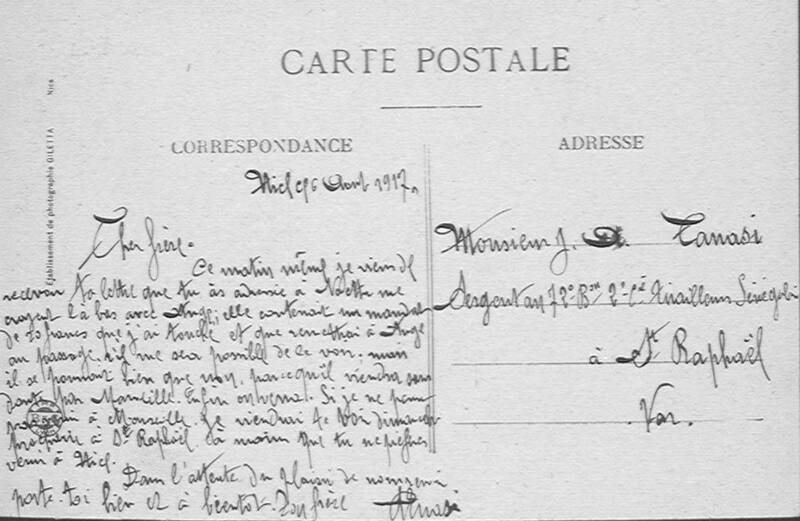 CARTE POSTALE
CORRESPONDANCE
ADRESSE
Etablissement de photographie GILETTA Nice
6 Aout 1917
Cher frère.
Ce matin même je viens de
recevoir ta lettre que tu as adressée à me
croyant là bas avec Ange; elle contenait un mandat
de francs que j'ai touché et que remettrai à Ange
au passage, s'il me sera possible de le voir, mais
il se pourrait bien que non, parcequ'il viendra sans
doute par Marseille. Enfin on verra. Si je ne
à Marseille. Je viendrai te voir dimanche
à St Raphaël. à moins que tu ne puisses
venir à
Dans l'attente du plaisir de
porte-toi bien et à bientôt. Ton frère Tanasi
Monsieur J. Tanasi
Sergent au 72e Bon 2e Cie Tirailleurs Sénégalais
à St Raphaël
Var.